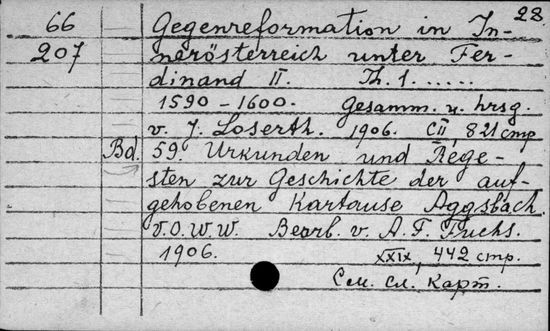 28.
66 Gegenreformation in In-
207 nerösterreich unter Fer-
dinand II. Th. 1. ......
1590 – 1600. Gesamm. u. hrsg.
v. J. Loserth. 1906. CII, 821 стр
Bd. 59. Urkunden und Rege-
sten zur Geschichte der auf-
gehobenen Kartause Aggsbach
V.O.W.W. Bearb. v. A. F. Fuchs.
1906. XXIX, 442 стр.
См. сл. карт.